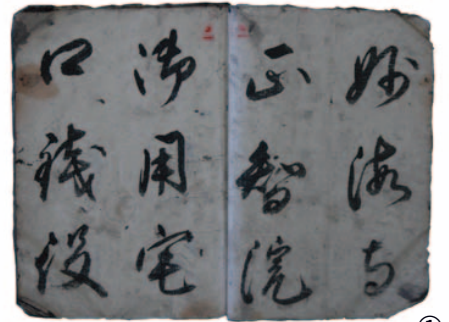 妙海寺
正智院
御用宅
口銭役